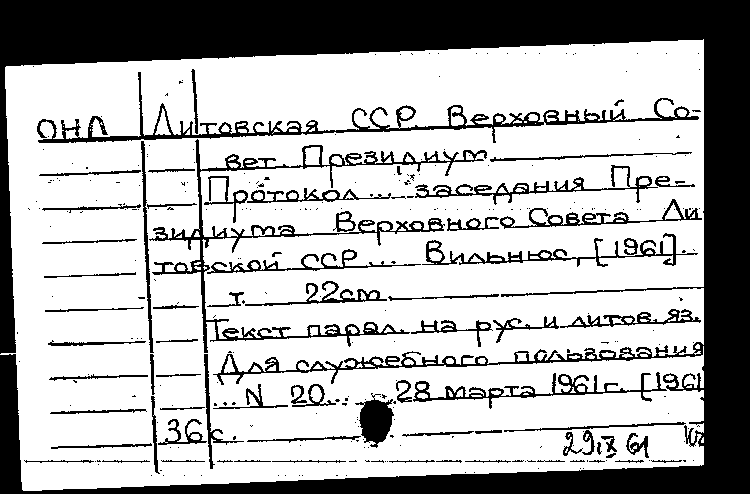 ОНЛ Литовская ССР. Верховный Со-
вет. Президиум.
Протокол... заседания Пре-
зидиума Верховного Совета Ли
товской ССР... Вильнюс, [1961].
т. 22cm.
Текст парал. на рус. и литов. яз.
Для служебного пользования
...N 20... 28 марта 1961г. [1961
36 с.
29.IX 61